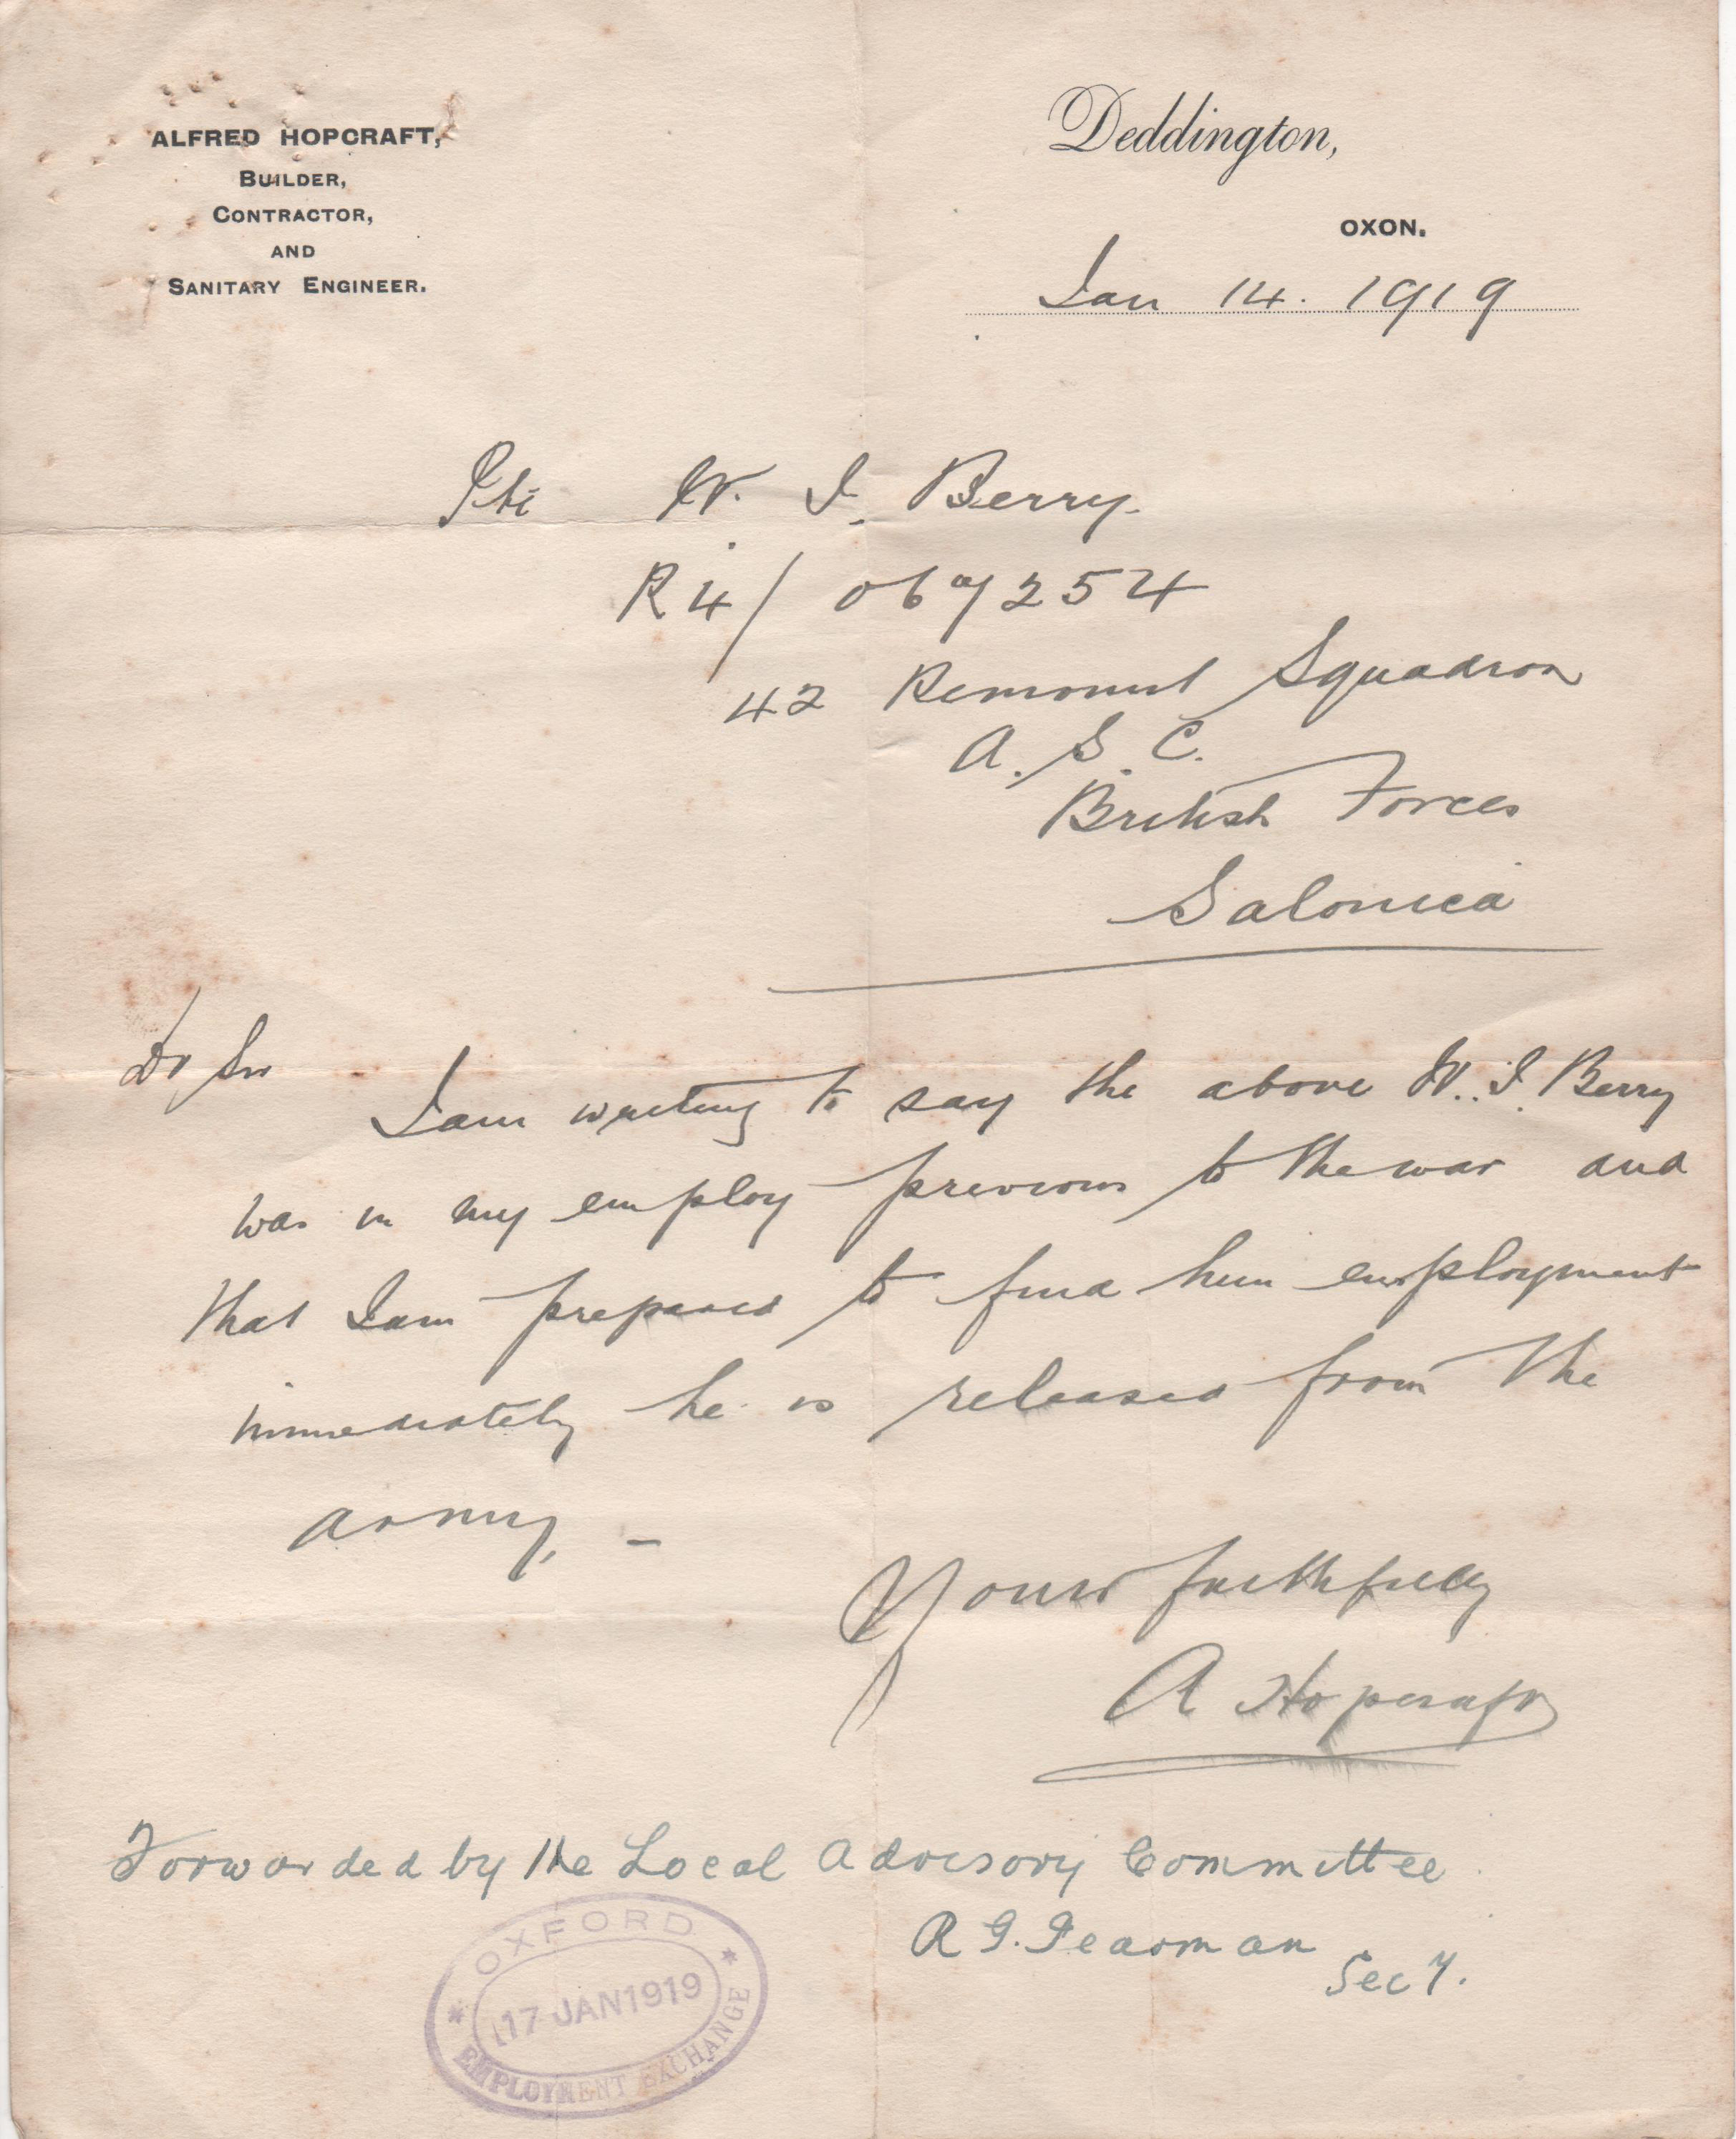 ALFRED HOPCRAFT,
BUILDER,
CONTRACTOR,
AND
SANITARY ENGINEER.
Deddington,
OXON.
Jan 14. 1919
Pte W. I. Berry.
R4/ 067254
42 Remount Squadron
A. S. C.
British Forces
Salonica
Dr Sir
I am writing to say the above W. I. Berry
was in my employ previous to the war and
that I am prepared to find him employment
immediately he is released from the
army. -
Yours faithfully
A Hopcraft
Forwarded by the Local Advisory Committee
R G. Pearman
Secy.
OXFORD
17 JAN 1919
EMPLOYMENT EXCHANGE